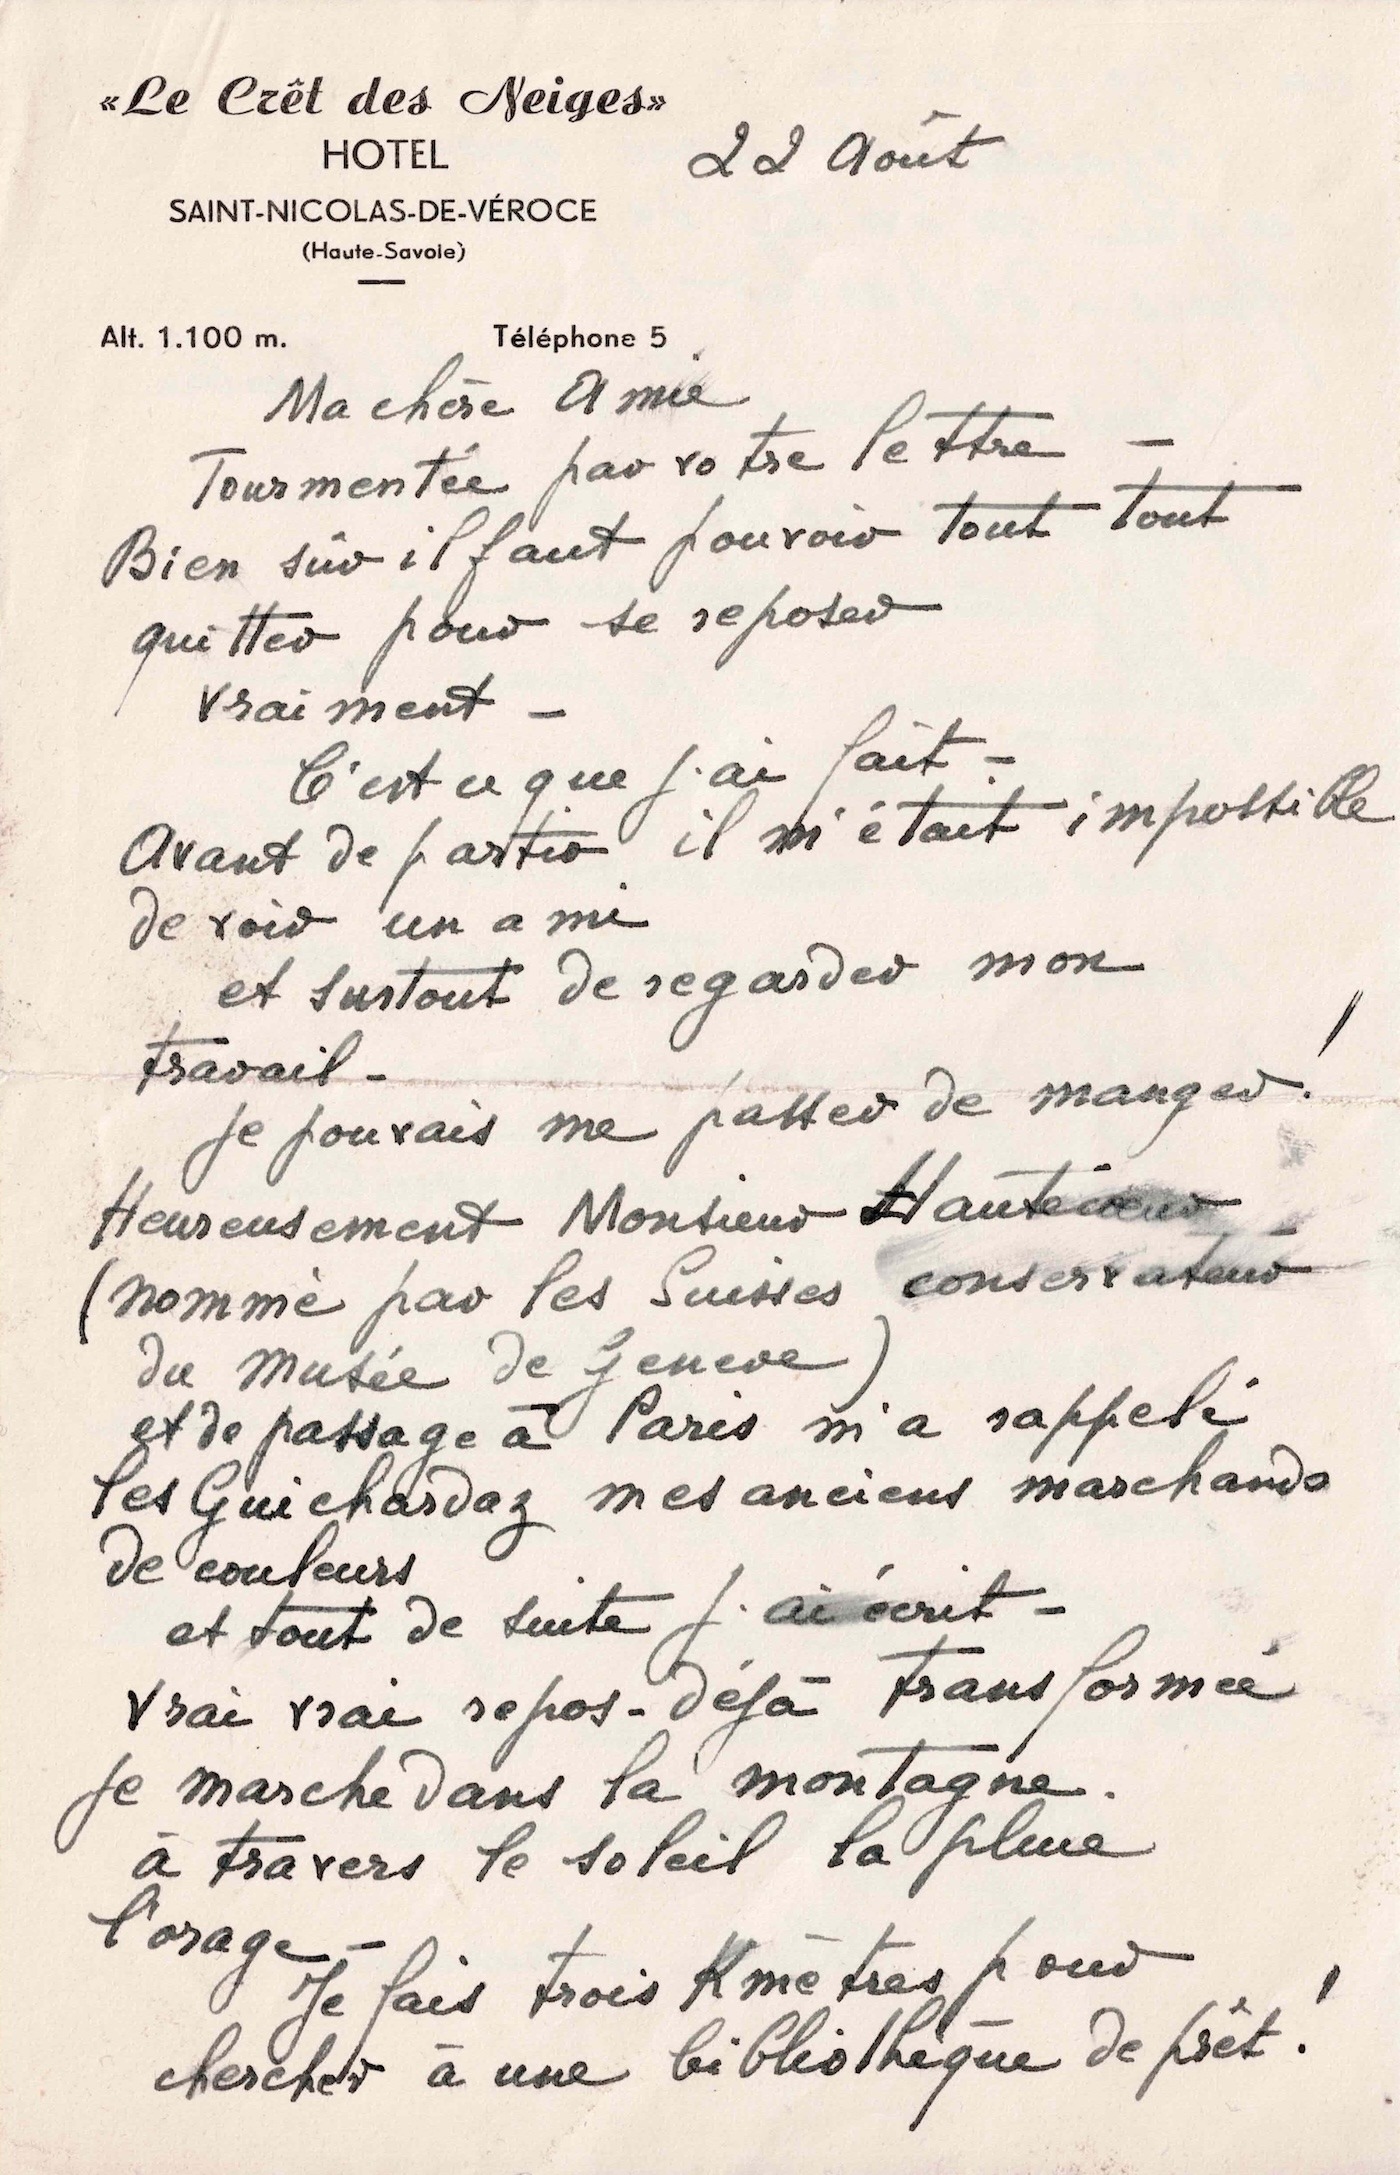 «Le Crêt des Neiges»
HOTEL
SAINT-NICOLAS-DE-VÉROCE
(Haute-Savoie)
22 Août
Alt. 1.100 m. Téléphone 5
Ma chère Amie
Tourmentée par votre lettre –
Bien sûr il faut pouvoir tout tout
quitter pour se reposer
vraiment –
C'est ce que j'ai fait –
Avant de partir il m'était impossible
de voir un ami
et surtout de regarder mon
travail –
je pouvais me passer de manger !
Heureusement Monsieur
(nommé par les Suisses conservateur
du Musée de Geneve)
et de passage à Paris m'a rappelé
les Guichardaz mes anciens marchands
de couleurs
et tout de suite j'ai écrit –
vrai vrai repos – déjà transformée
je marche dans la montagne.
à travers le soleil la pluie
l'orage –
Je fais trois Kmètres pour
chercher à une bibliothèque de prêt !